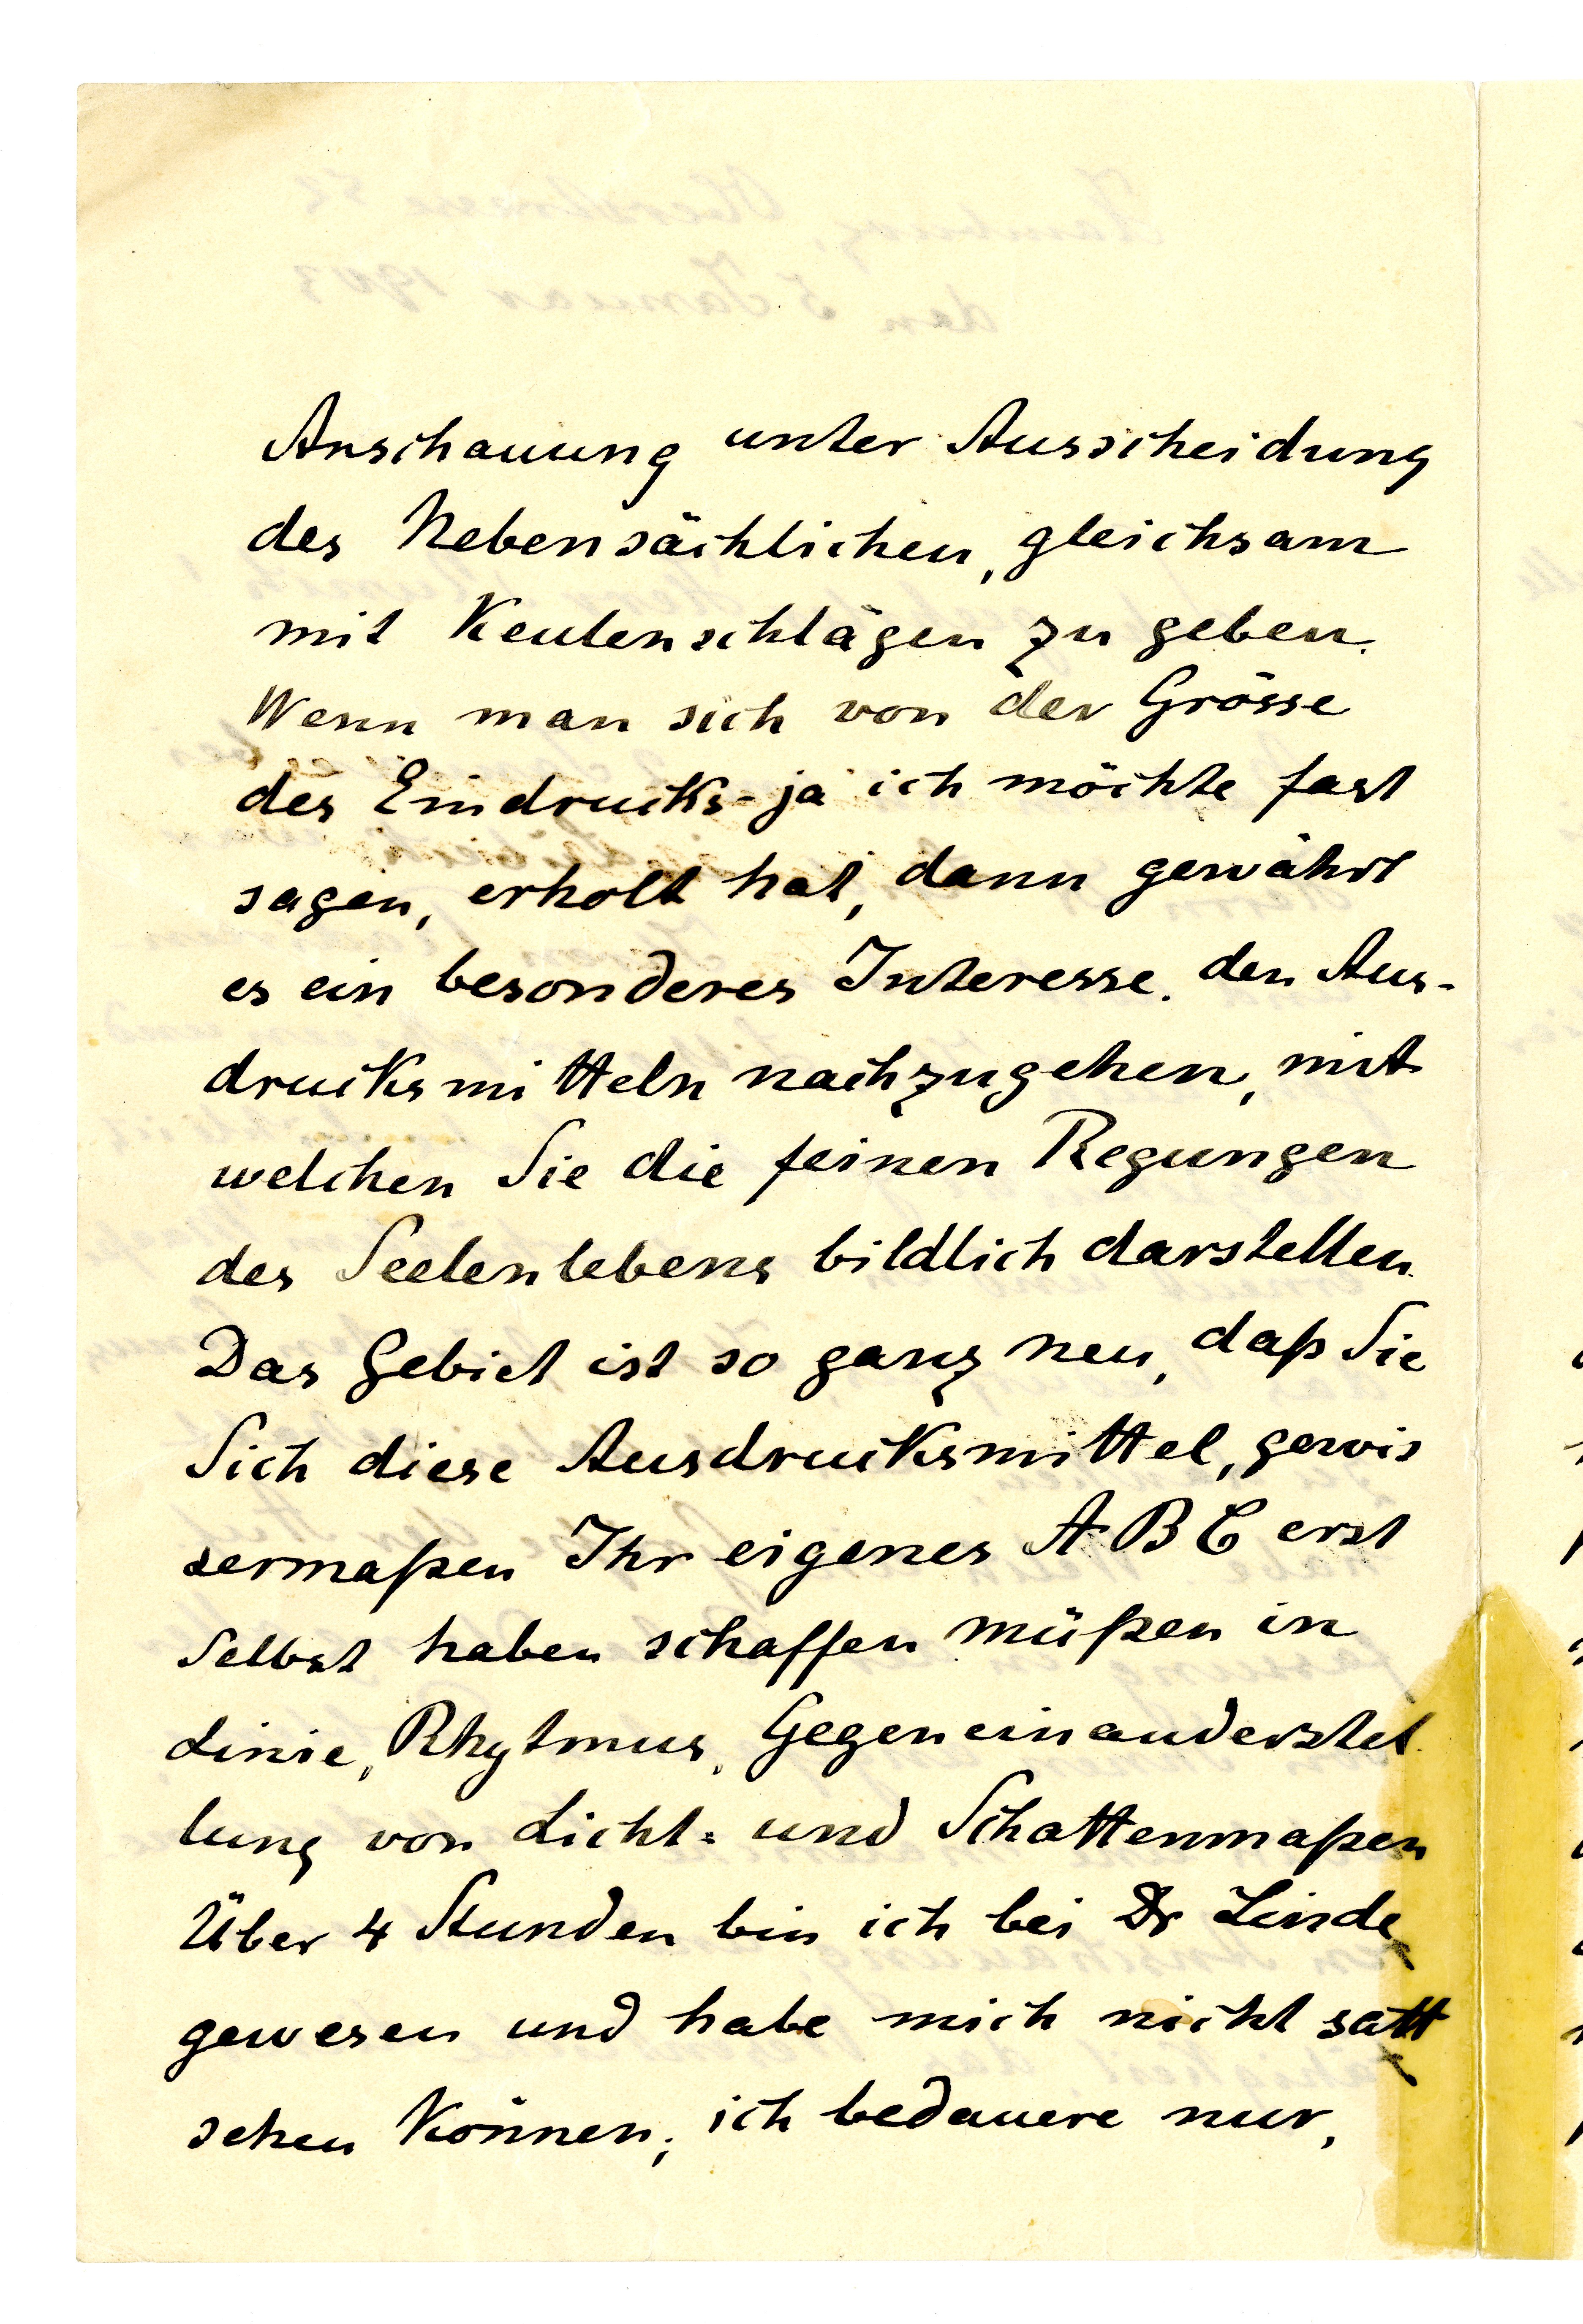 Anschauung unter Ausscheidung
des Nebensächlichen, gleichsam
mit Keulenschlägen zu geben.
Wenn man sich von der Grösse
des Eindrucks - ja ich möchte fast
sagen, erholt hat, dann gewährt
es ein besonderes Interesse. den Aus-
drucksmitteln nachzugehen, mit
welchen Sie die feinen Regungen
des Seelenlebens bildlich darstellen.
Das Gebiet ist so ganz neu, daß Sie
Sich diese Ausdrucksmittel, gewis
sermaßen Ihr eigenes A B C erst
Selbst haben schaffen müßen in
Linie, Rhytmus, Gegeneinanderstel
lung von Licht- und Schattenmaßen
Über 4 Stunden bin ich bei Dr Linde
gewesen und habe mich nicht satt
sehen Können; ich bedauere nur,